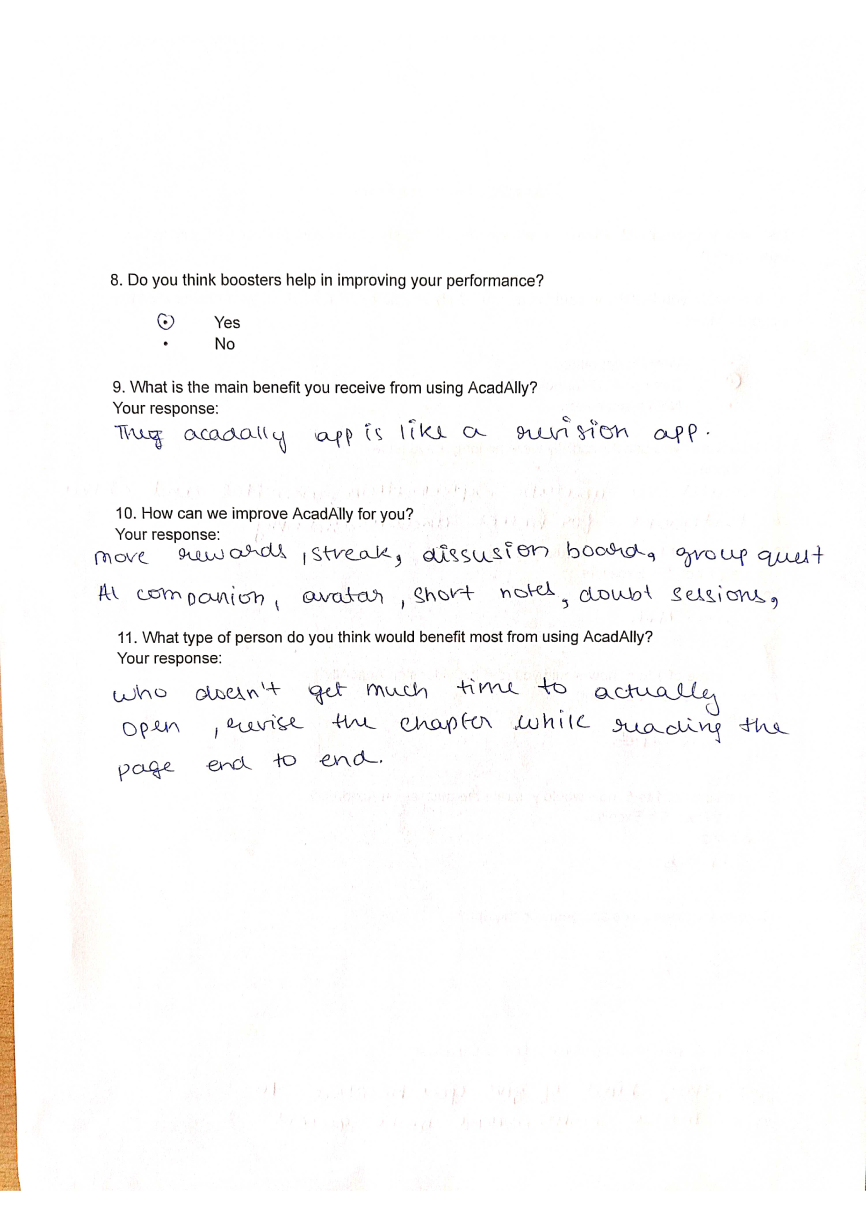 8. Do you think boosters help in improving your performance?
Yes
No
9. What is the main benefit you receive from using AcadAlly?
Your response:
acadally app is like a revision app.
10. How can we improve AcadAlly for you?
Your response:
more rewards, streak, dissusion board, group quest
AI companion, avatar, short notes, doubt sessions,
11. What type of person do you think would benefit most from using AcadAlly?
Your response:
who doesn't get much time to actually
open, revise the chapter while reading the
page end to end.